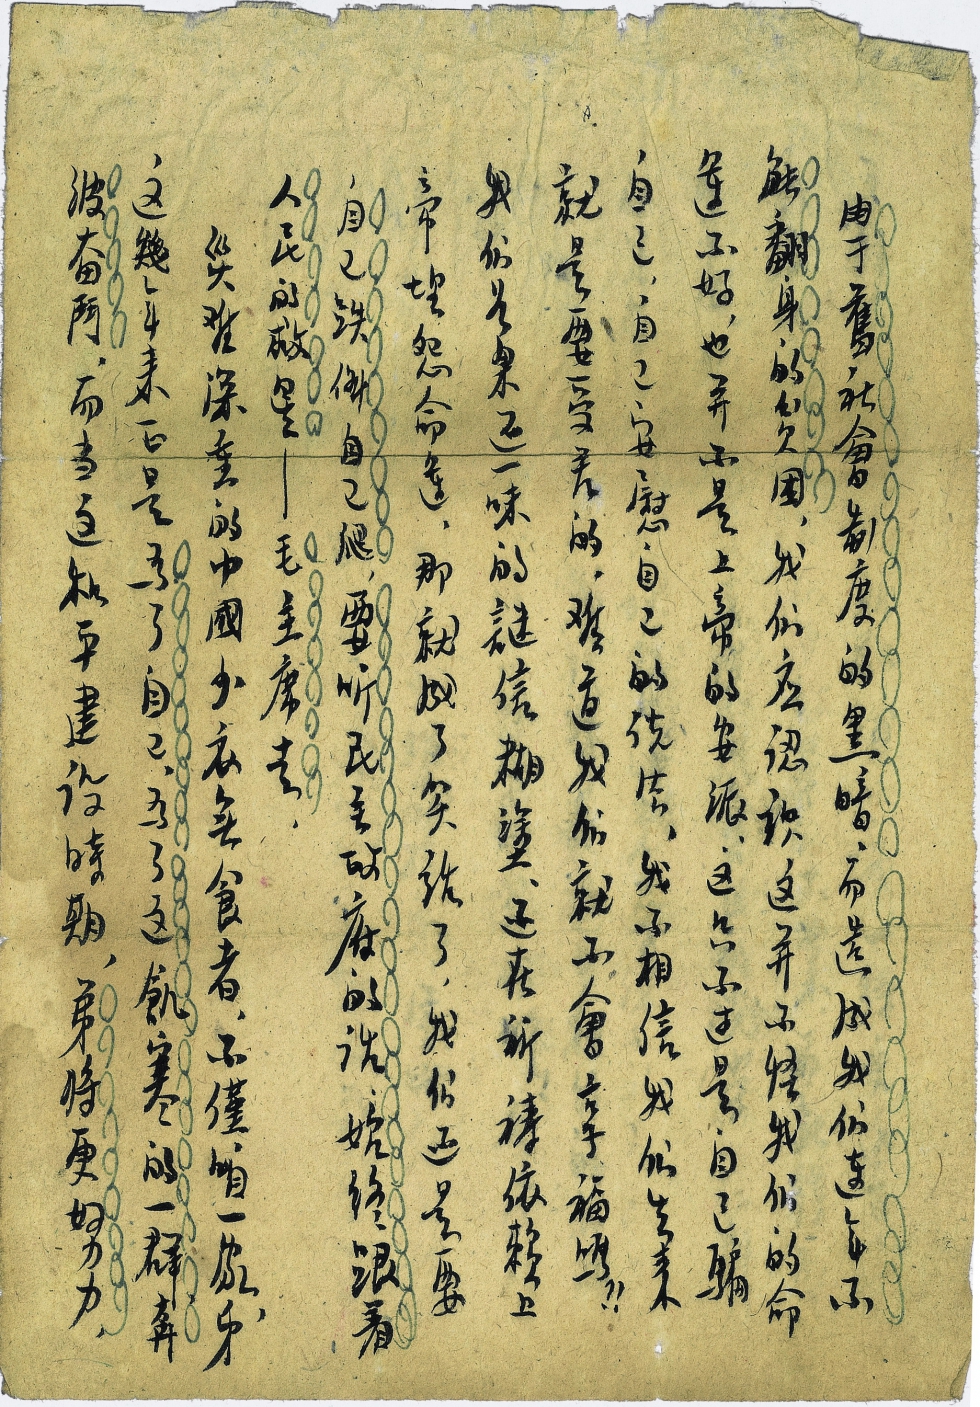 由于舊社會制度的黑暗，而造成我们連年不
能翻身的貧困，我们应認识这并不怪我们的命
運不好，也并不是上帝的安派，这只不过是自己騙
自己，自己安慰自己的说法，我不相信我们生来
就是要受苦的，难道我们就不會享福嗎！！
我们若果还一味的謎信糊塗，还在祈禱依賴上
帝埋怨命運，那就成了笑話了，我们还是要
自己跌倒自己爬，要听民主政府的话，始终跟着
人民的救星——毛主席走，
災难深重的中國少衣無食者，不僅咱一家，弟
这幾年来正是為了自己，為了这飢寒的一群奔
波奋鬥，而当这和平建設時期，弟将更好努力，